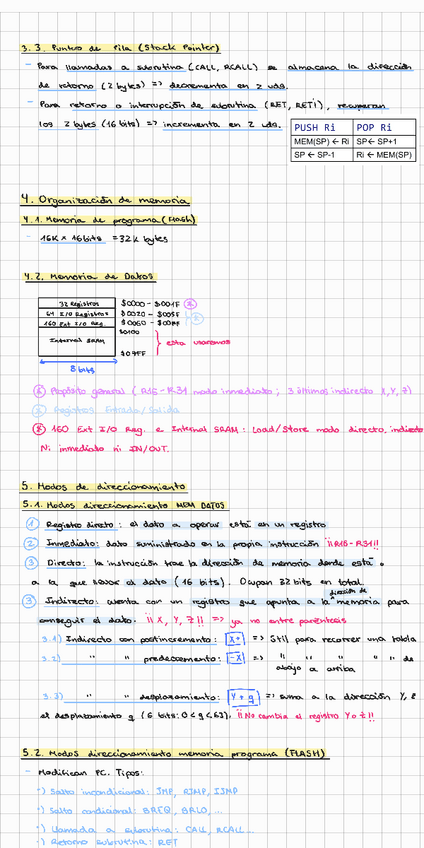 3.3. Puntero de Pila (Stack Pointer)
- Para llamadas a subrutina (CALL, RCALL) se almacena la dirección
de retorno (2 bytes) => decrementa en 2 uds.
- Para retorno o interrupción de subrutina (RET, RETI), recuperan
los 2 bytes (16 bits) => incrementa en 2 uds.
PUSH Ri POP Ri
MEM(SP) ← Ri SP← SP+1
SP ← SP-1 Ri ← MEM(SP)
4. Organización de memoria
4.1. Memoria de programa (Flash)
- 16K x 16bits = 32k bytes
4.2. Memoria de Datos
32 Registros $0000 - $001F
64 I/O Registros $0020 - $005F
160 Ext I/O Reg. $0060 - $00FF
Internal SRAM $0100
esta usaremos
$04FF
8 bits
Propósito general (R16-R31 modo inmediato; 3 últimos indirecto X,Y,Z)
Registros Entrada/Salida
160 Ext I/O Reg. e Internal SRAM: Load/Store modo directo, indirecto
Ni inmediato ni IN/OUT.
5. Modos de direccionamiento
5.1. Modos direccionamiento MEM DATOS
1 Registro directo: el dato a operar está en un registro
2 Inmediato: dato suministrado en la propia instrucción ¡¡R16-R31!!
3 Directo: la instrucción trae la dirección de memoria donde está o
a la que llevar el dato (16 bits). Ocupan 32 bits en total
3 Indirecto: cuenta con un registro que apunta a la dirección de memoria para
conseguir el dato. ¡¡X, Y, Z!! => ya no entre paréntesis
3.1) Indirecto con postincremento: X+ => Útil para recorrer una tabla
3.2) " " predecremento: -X => " " " " " de
abajo a arriba
3.3) " " desplazamiento: Y+q => suma a la dirección Y, Z
el desplazamiento q (6 bits: 0<q<63). ¡¡No cambia el registro Y o Z!!
5.2. Modos direccionamiento memoria programa (FLASH)
- Modifican PC. Tipos:
·) Salto incondicional: JMP, RJMP, IJMP
·) Salto condicional: BREQ, BRLO,...
·) Llamada a subrutina: CALL, RCALL...
·) Retorno subrutina: RET